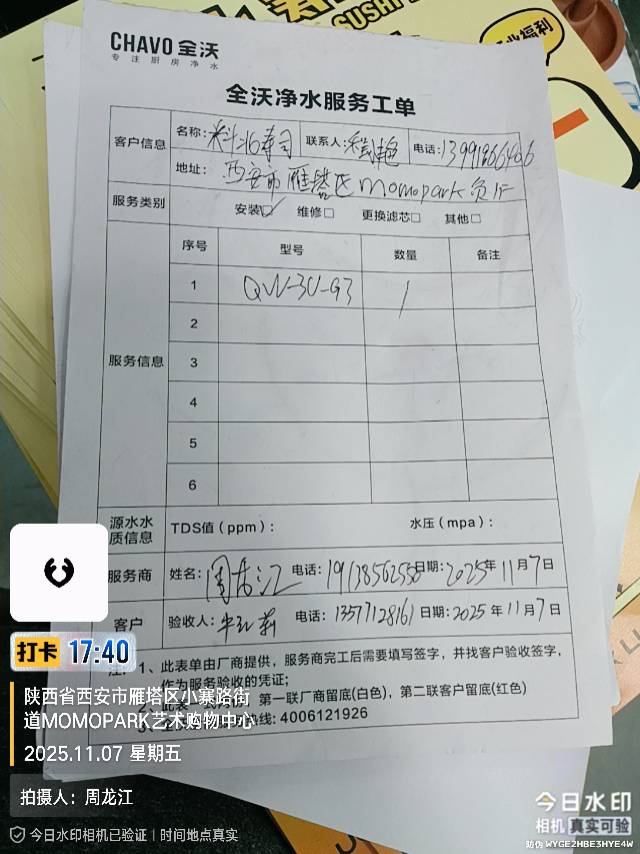 SUSHI
业福利
CHAVO 全沃
专注厨房净水
全沃净水服务工单
客户信息 名称: 寿司 联系人: 电话: 13991866466
地址: 西安市雁塔区momopark负1F
服务类别 安装☑ 维修□ 更换滤芯□ 其他□
服务信息 序号 型号 数量 备注
1 QW-3U-G3 1
2
3
4
5
6
源水水质信息 TDS值(ppm): 水压(mpa):
服务商 姓名: 周龙江 电话: 19138562556 日期: 2025年11月7日
客户 验收人: 电话: 13577128161 日期: 2025年11月7日
注: 1、此表单由厂商提供,服务商完工后需要填写签字,并找客户验收签字,
作为服务验收的凭证;
2、此表一 第一联厂商留底(白色),第二联客户留底(红色)
3、全 热线: 4006121926
打卡 17:40
陕西省西安市雁塔区小寨路街
道MOMOPARK艺术购物中心
2025.11.07 星期五
拍摄人: 周龙江
今日水印相机已验证 | 时间地点真实
今日水印
相机 真实可验
防伪 WYGE2HBE3HYE4W